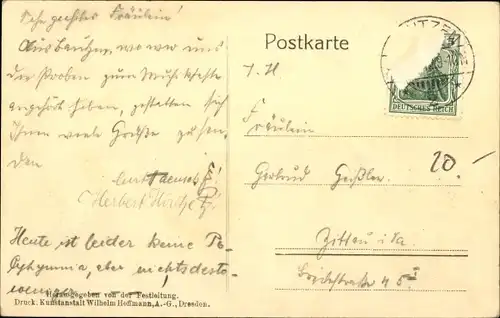 Sehr geehrtes Fräulein!
Aus Bautzen, wo wir uns
die Proben zum Musikfeste
angehört haben, gestatten sich
Ihnen viele Grüße zu sen-
den
Curt
Herbert
Heute ist leider keine Po-
lyhymnia, aber nichtsdesto-
weniger
Herausgegeben von der Festleitung.
Druck: Kunstanstalt Wilhelm Hoffmann, A.-G., Dresden.
Postkarte
BAUTZEN
DEUTSCHES REICH
I. H.
Fräulein
Gertrud Geißler
20.-
Zittau i. Sa.
45 I